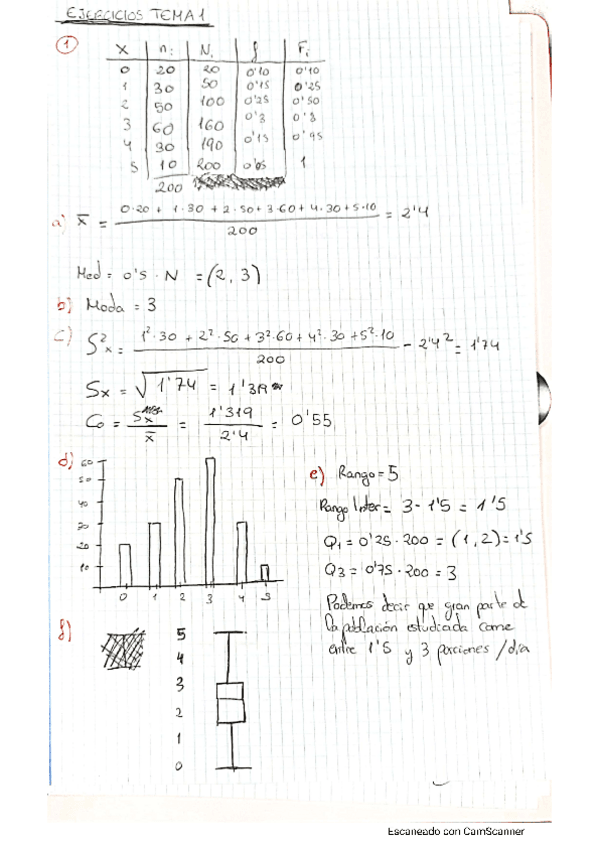 EJERCICIOS TEMA 1
1
x nᵢ Nᵢ f Fᵢ
0 20 20 0'10 0'10
1 30 50 0'15 0'25
2 50 100 0'25 0'50
3 60 160 0'3 0'8
4 30 190 0'15 0'95
5 10 200 0'05 1
200
a) x̄ = 0·20 + 1·30 + 2·50 + 3·60 + 4·30 + 5·10 / 200 = 2'4
Med = 0'5 · N = (2, 3)
b) Moda = 3
c) S²ₓ = 1²·30 + 2²·50 + 3²·60 + 4²·30 + 5²·10 / 200 - 2'4² = 1'74
Sx = √1'74 = 1'319
Co = Sx / x̄ = 1'319 / 2'4 = 0'55
d) 60
50
40
30
20
10
0 1 2 3 4 5
e) Rango = 5
Rango Inter = 3 - 1'5 = 1'5
Q₁ = 0'25 · 200 = (1, 2) = 1'5
Q3 = 0'75 · 200 = 3
Podemos decir que gran parte de
la población estudiada come
entre 1'5 y 3 porciones /día
f) 5
4
3
2
1
0
Escaneado con CamScanner